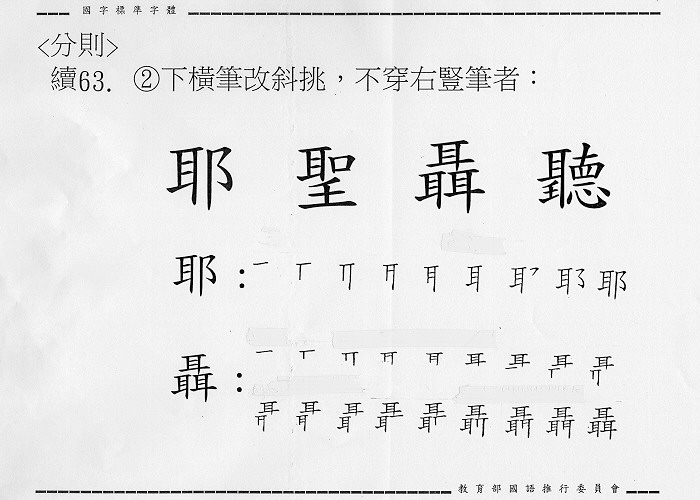 國字標準字體
<分則>
續63. ②下橫筆改斜挑，不穿右豎筆者：
耶 聖 聶 聽
耶：一 丅 耳 耶
聶：一 丅 耳 聶
教育部國語推行委員會